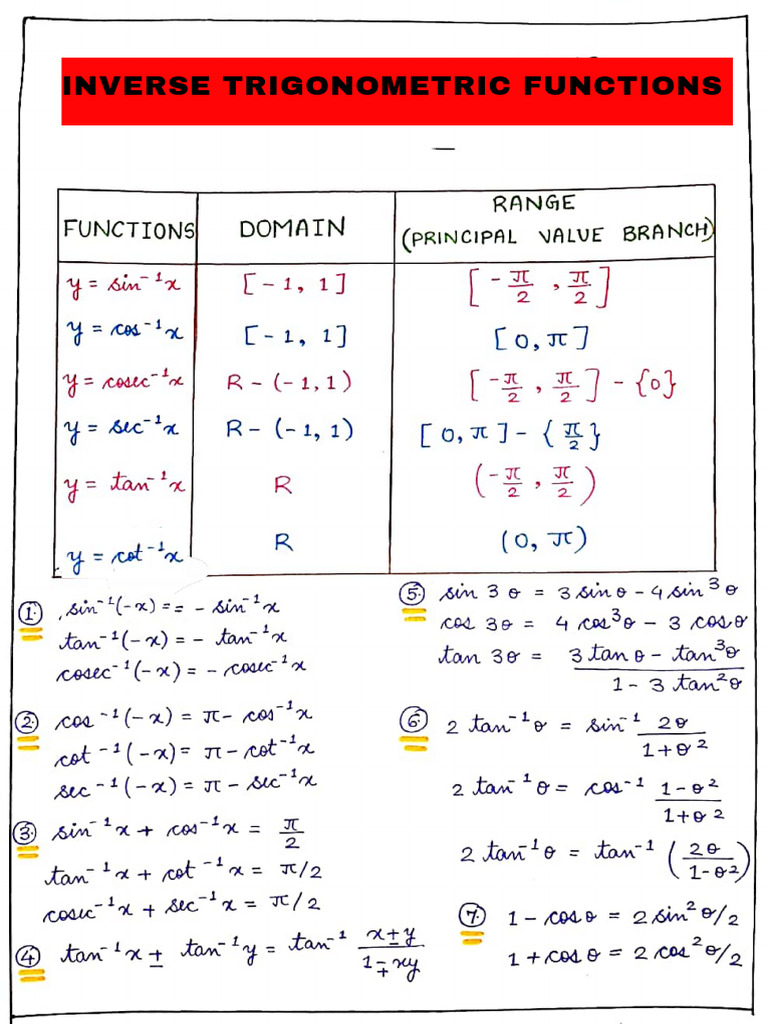 INVERSE TRIGONOMETRIC FUNCTIONS
FUNCTIONS DOMAIN RANGE (PRINCIPAL VALUE BRANCH)
y = sin⁻¹x [-1, 1] [-π/2, π/2]
y = cos⁻¹x [-1, 1] [0, π]
y = cosec⁻¹x R - (-1, 1) [-π/2, π/2] - {0}
y = sec⁻¹x R - (-1, 1) [0, π] - {π/2}
y = tan⁻¹x R (-π/2, π/2)
y = cot⁻¹x R (0, π)
① sin⁻¹(-x) == - sin⁻¹x
tan⁻¹(-x) = - tan⁻¹x
cosec⁻¹(-x) = - cosec⁻¹x
② cos⁻¹(-x) = π - cos⁻¹x
cot⁻¹(-x) = π - cot⁻¹x
sec⁻¹(-x) = π - sec⁻¹x
③ sin⁻¹x + cos⁻¹x = π/2
tan⁻¹x + cot⁻¹x = π/2
cosec⁻¹x + sec⁻¹x = π/2
④ tan⁻¹x ± tan⁻¹y = tan⁻¹ (x ± y)/(1 ∓ xy)
⑤ sin 3θ = 3 sinθ - 4 sin³θ
cos 3θ = 4 cos³θ - 3 cosθ
tan 3θ = (3 tanθ - tan³θ)/(1 - 3 tan²θ)
⑥ 2 tan⁻¹θ = sin⁻¹ 2θ/(1+θ²)
2 tan⁻¹θ = cos⁻¹ (1-θ²)/(1+θ²)
2 tan⁻¹θ = tan⁻¹ (2θ/(1-θ²))
⑦ 1 - cosθ = 2 sin²θ/2
1 + cosθ = 2 cos²θ/2